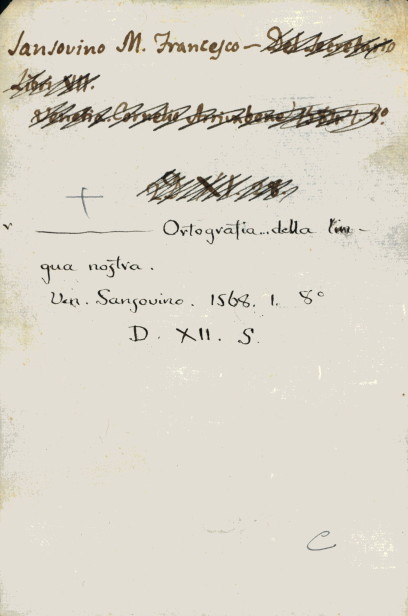 Sansovino M. Francesco – Del Secretario
Libri VII.
Venetia. Cornelio Arrivabene 1584. 1. 8º
Ortografia... della lin-
gua nostra.
Ven. Sansovino. 1568. 1. 8º
D. XII. S.
C